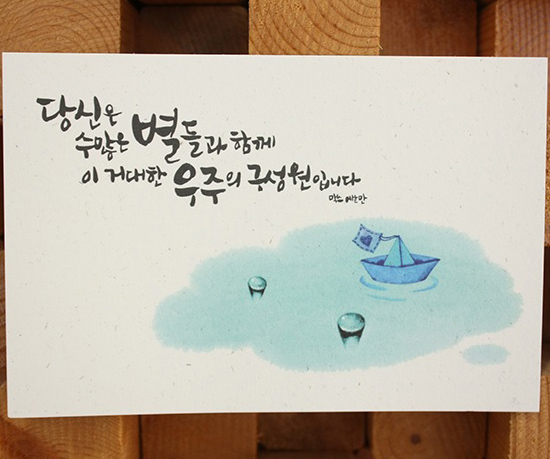 당신은
수많은 별들과 함께
이 거대한 우주의 구성원입니다
막스 에르만